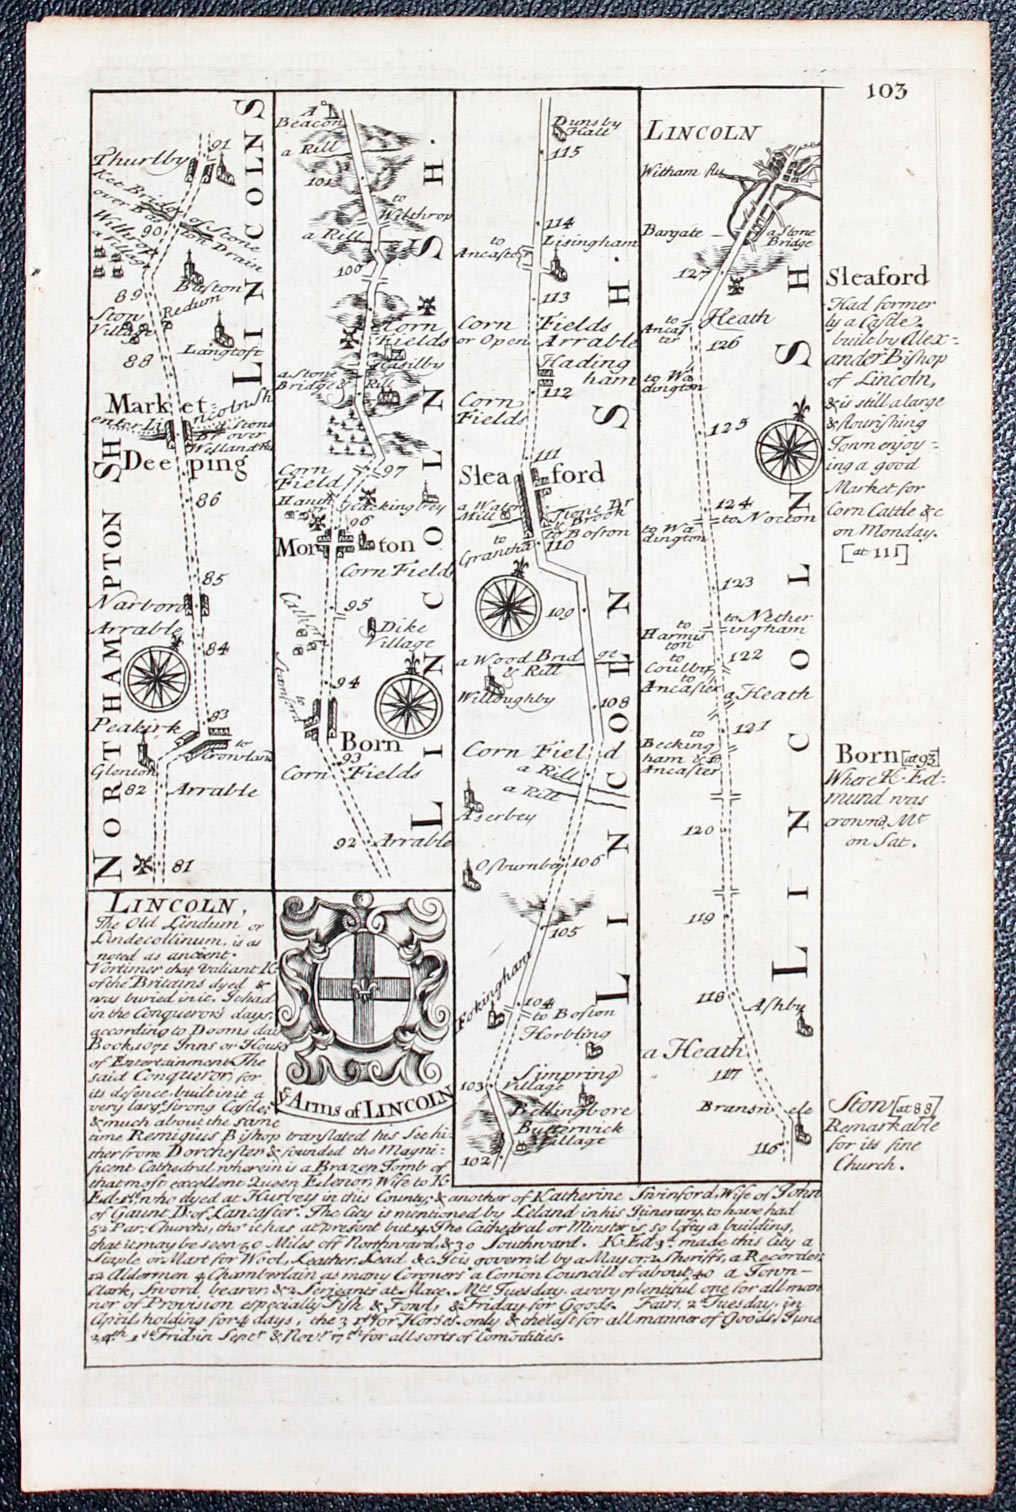 103
Thurlby
91
Ket Bridge of Stone
over Bas ton Drain
90
Wilthrop
a Village
89
Baston
Redum
Stow
Village
Langtoft
88
Market
Deeping
enter Lincolnsh
a Stone
Br over
Welland flu
86
85
Narboro
Arrable
84
Peakirk
83
to
Crowland
Glenton
82
Arrable
81
NORTHAMPTON SH
LINCOLNS
A
Beacon
a Rill
101
to
Wilthrop
a Rill
100
Corn
Fields
Hasilby
a Stone
Bridge &
Rill
Corn
Field
97
Hackingbey
96
Morton
Corn Field
95
Dike
Village
Stamford
to
94
Born
93
Corn Fields
92
Arrable
LINCOLN SH.
Dunsby
Hall
115
114
to
Ancaster
Lisingham
113
Corn Fields
or Open Arrable
Hading
ham
112
Corn
Fields
111
Sleaford
a Water
Mill
Stone Br
& Brook
to Boston
to
Grantham
110
109
a Wood Bridge
& Rill
Willoughby
108
Corn Field
a Rill
a Rill
Aserbey
Osburnbey
106
105
Fokingham
104
to Boston
Horbling
Simpring
Village
103
Billingbore
Butterwick
Village
102
LINCOLN SH.
LINCOLN
Witham flu
Bargate
a Stone
Bridge
127
to
Ancas
ter
Heath
126
to Wa
dington
125
124
to Nocton
to Wa
dington
123
to
Harmis
ton
to Nether
ingham
122
to
Coulby
to
Ancaster
a Heath
121
to
Becking
ham & to
Ancaster
120
119
118
Ashby
a Heath
117
Bransn ele
116
LINCOLN SH
Sleaford
Had former
ly a Castle,
built by Alex=
ander Bishop
of Lincoln,
& is still a large
& flourishing
Town enjoy=
ing a good
Market for
Corn Cattle &c
on Monday.
[at 111]
Born [at 93]
Where K. Ed=
mund was
crownd, Mt
on Sat.
Stow [at 88]
Remarkable
for its fine
Church.
& Arms of LINCOLN
LINCOLN,
The Old Lindum or
Lindecollinum, is as
noted as ancient.
Vortimer that valiant K
of the Britains dyed &
was buried in it. It had
in the Conquerors days,
according to Dooms day
Book, 1071 Inns or Houses
of Entertainment. The
said Conqueror, for
its defence, built in it a
very large strong Castle,
& much about the same
time Remigius Bishop translated his See hi=
ther from Dorchester & founded the Magni=
ficent Cathedral, wherein is a Brazen Tomb of
that most excellent Queen Elenor, Wife to K.
Ed. 1st who dyed at Hurbey in this County; & another of Katherine Swinford, Wife of John
of Gaunt D. of Lancaster. The City is mentioned by Leland in his Itinerary, to have had
52 Par. Churchs, tho' it has at present but 14. The Cathedral or Minster is so lofty a building,
that it may be seen 50 Miles off Northward, & 30 Southward. K. Ed 3d made this City a
Staple or Mart for Wool, Leather, Lead &c. It is govern'd by a Mayor 2 Sheriffs, a Recorder
12 Aldermen 4 Chamberlain as many Coroners a Comon Councill of about 40 a Town-
Clark, Sword, bearer, & 2 Serjeants at Mace. Mts Tuesday. a very plentiful one for all man
nor of Provision especially Fish & Fowl, & Friday for Goods. Fairs, 2d Tuesday, in
April, holding for 4 days, the 3 1st for Horses only & the last for all manner of Goods, June
24th 1st Frid. in Sept & Novr 17th for all sorts of Comodities.